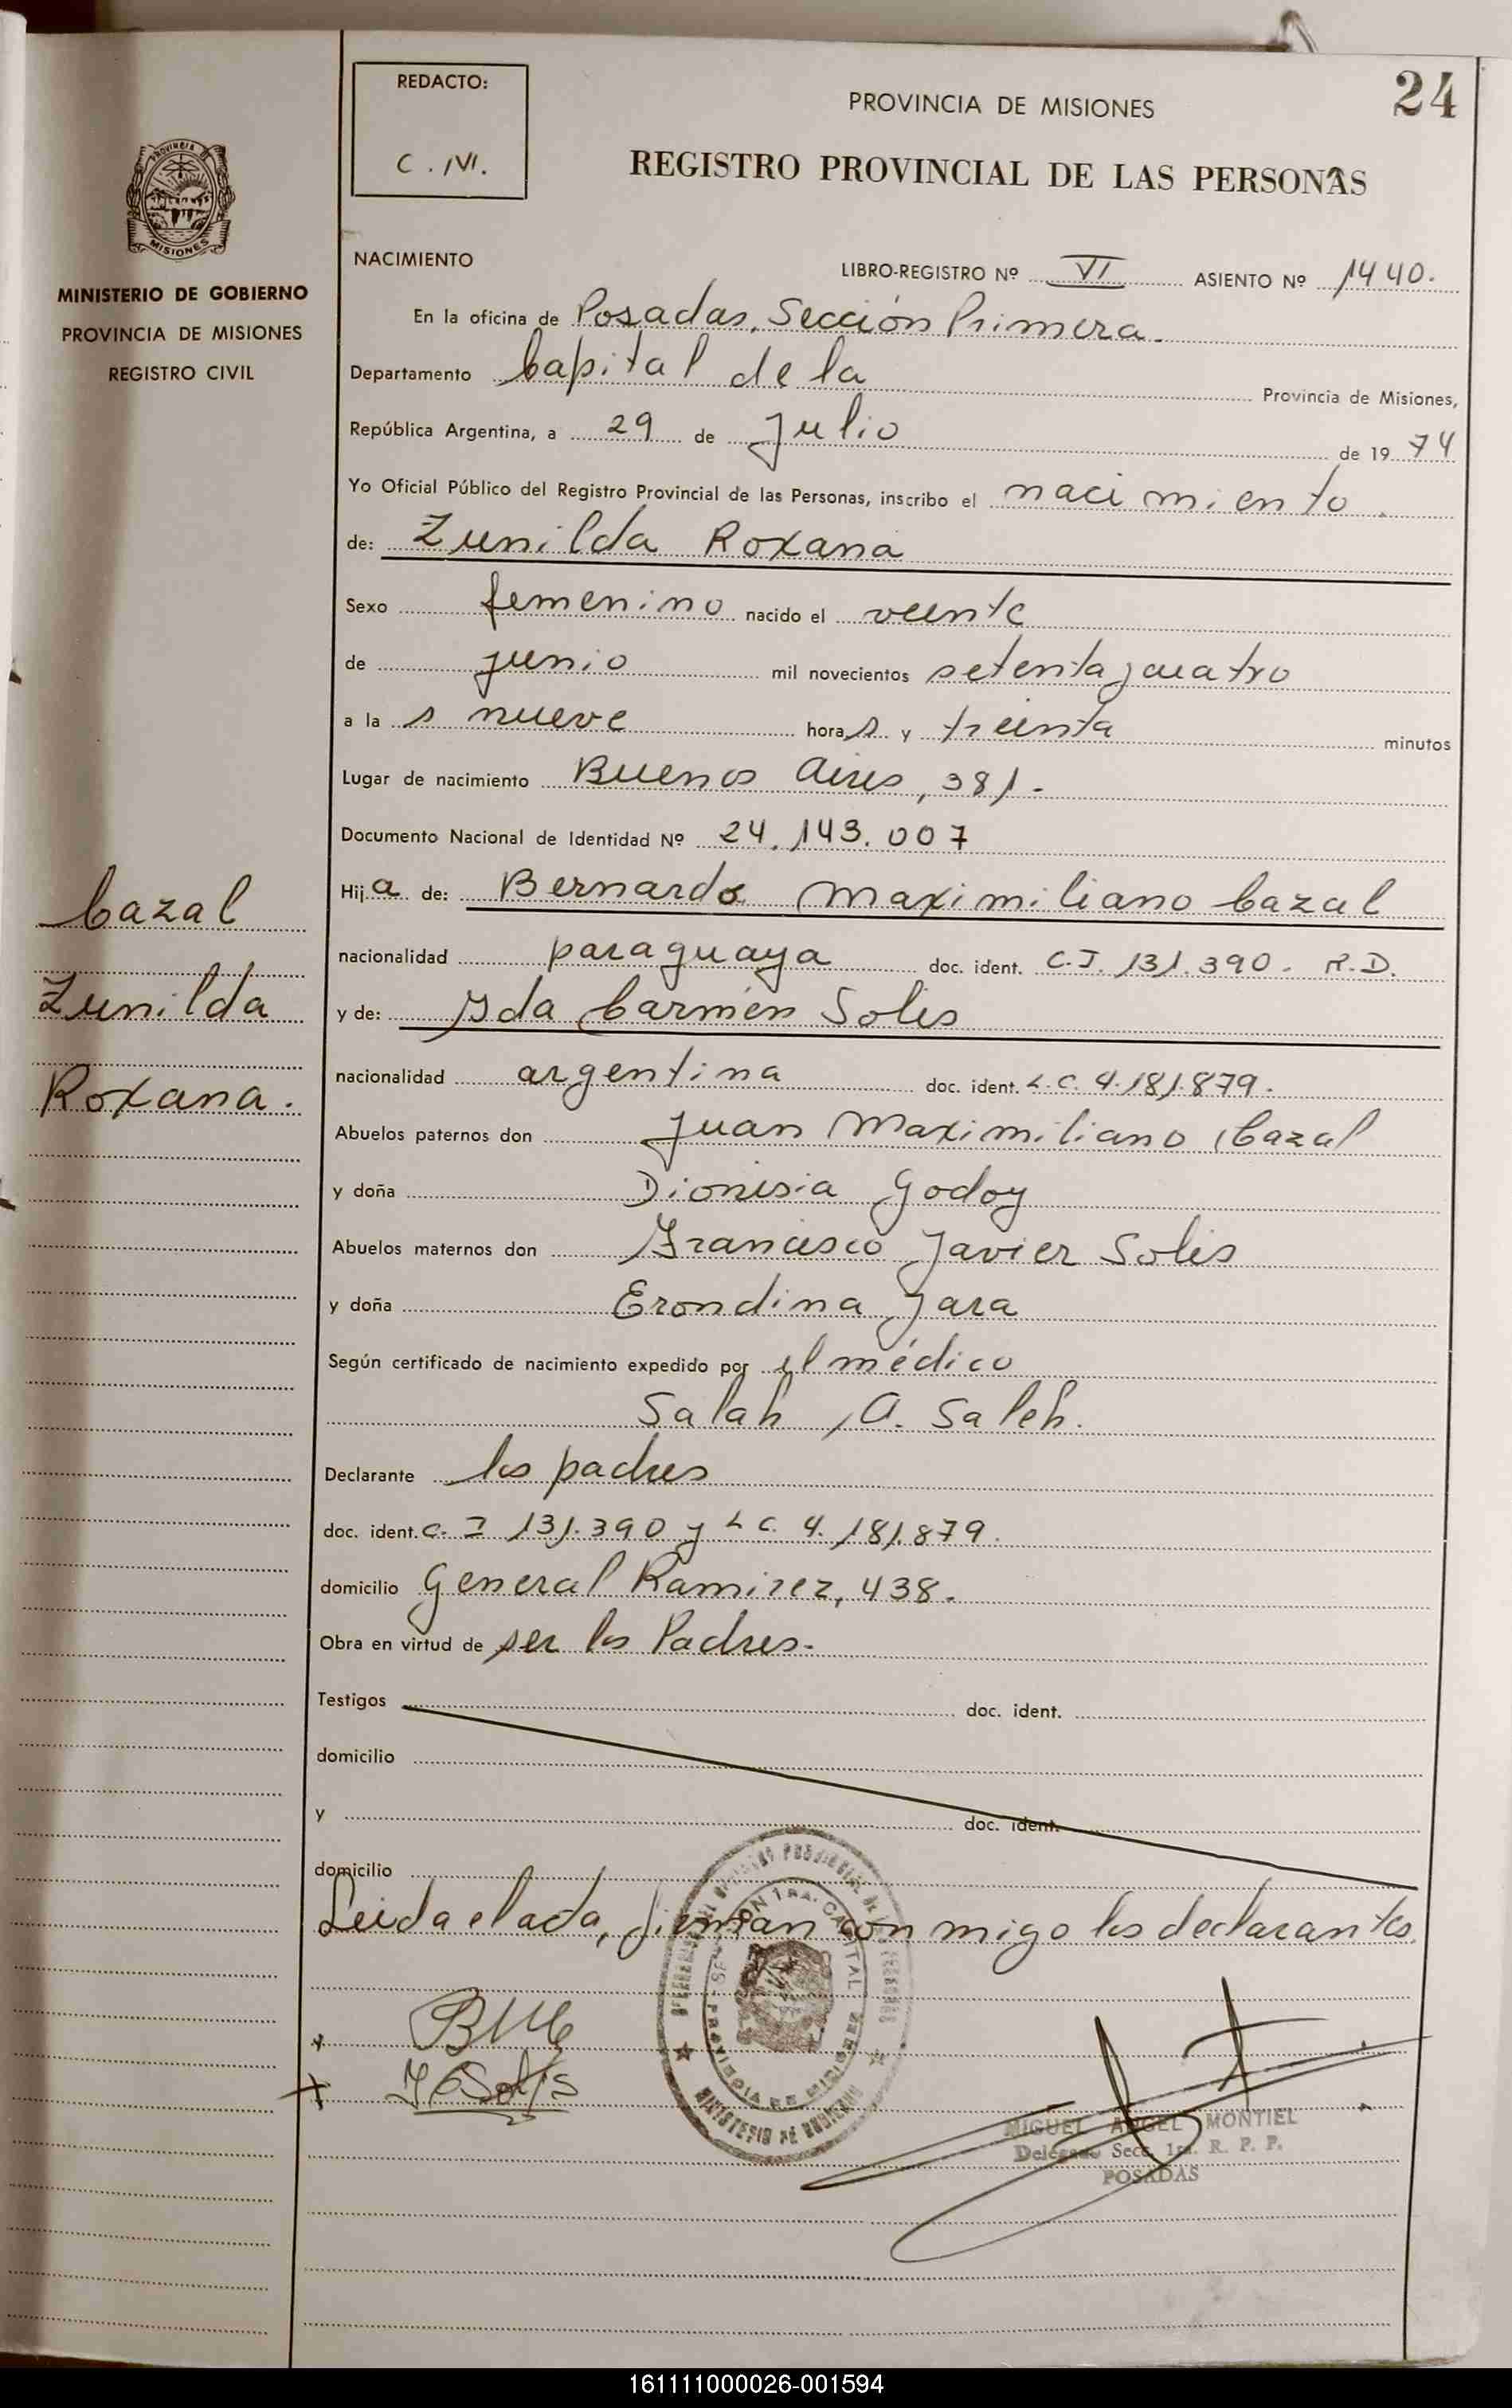 24
REDACTO:
C. M.
PROVINCIA DE MISIONES
REGISTRO PROVINCIAL DE LAS PERSONAS
MISIONES
MINISTERIO DE GOBIERNO
PROVINCIA DE MISIONES
REGISTRO CIVIL
NACIMIENTO LIBRO-REGISTRO Nº VI ASIENTO Nº 1440.
En la oficina de Posadas, Sección Primera.
Departamento Capital de la Provincia de Misiones,
República Argentina, a 29 de Julio de 1974
Yo Oficial Público del Registro Provincial de las Personas, inscribo el nacimiento.
de: Zunilda Roxana
Sexo femenino nacido el veinte
de junio mil novecientos setenta y cuatro
a las nueve horas y treinta minutos
Lugar de nacimiento Buenos Aires, 381.
Documento Nacional de Identidad Nº 24.143.007
Hija de: Bernardo Maximiliano Cazal
nacionalidad paraguaya doc. ident. C.I. 131.390. R.D.
y de: Ida Carmen Solis
nacionalidad argentina doc. ident. L.C. 4.181.879.
Abuelos paternos don Juan Maximiliano Cazal
y doña Dionisia Godoy
Abuelos maternos don Francisco Javier Solis
y doña Erondina Jara
Según certificado de nacimiento expedido por el médico
Salah A. Saleh.
Declarante los padres
doc. ident. C. I 131.390 y L C. 4.181.879.
domicilio General Ramirez, 438.
Obra en virtud de ser los Padres.
Testigos doc. ident.
domicilio
y doc. ident.
domicilio
Leida el acta, firman conmigo los declarantes.
Cazal
Zunilda
Roxana.
SECCION 1RA. CAPITAL
PROVINCIA DE MISIONES
MINISTERIO DE GOBIERNO
MIGUEL ANGEL MONTIEL
Delegado Secc. 1ra. R. P. P.
POSADAS
161111000026-001594